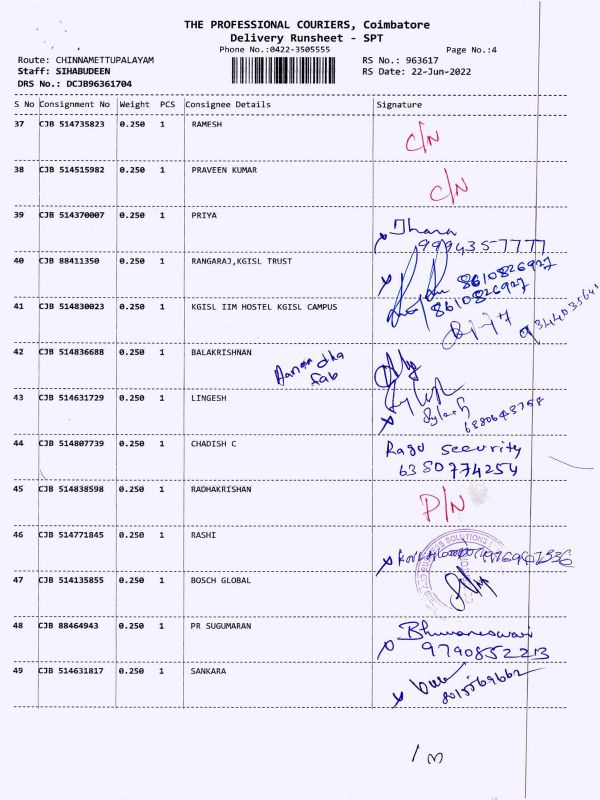 THE PROFESSIONAL COURIERS, Coimbatore
Delivery Runsheet - SPT
Phone No.:0422-3505555
Page No.:4
Route: CHINNAMETTUPALAYAM
RS No.: 963617
Staff: SIHABUDEEN
RS Date: 22-Jun-2022
DRS No.: DCJB96361704
S No Consignment No Weight PCS Consignee Details Signature
37 CJB 514735823 0.250 1 RAMESH C/N
38 CJB 514515982 0.250 1 PRAVEEN KUMAR C/N
39 CJB 514370007 0.250 1 PRIYA
9994357777
40 CJB 88411350 0.250 1 RANGARAJ,KGISL TRUST
8610826927
8610826927
41 CJB 514830023 0.250 1 KGISL IIM HOSTEL KGISL CAMPUS
42 CJB 514836688 0.250 1 BALAKRISHNAN
fab
43 CJB 514631729 0.250 1 LINGESH
44 CJB 514807739 0.250 1 CHADISH C Ragu security
6380774254
45 CJB 514838598 0.250 1 RADHAKRISHAN P/N
46 CJB 514771845 0.250 1 RASHI
47 CJB 514135855 0.250 1 BOSCH GLOBAL
48 CJB 88464943 0.250 1 PR SUGUMARAN Bhuvaneswari
9790852213
49 CJB 514631817 0.250 1 SANKARA